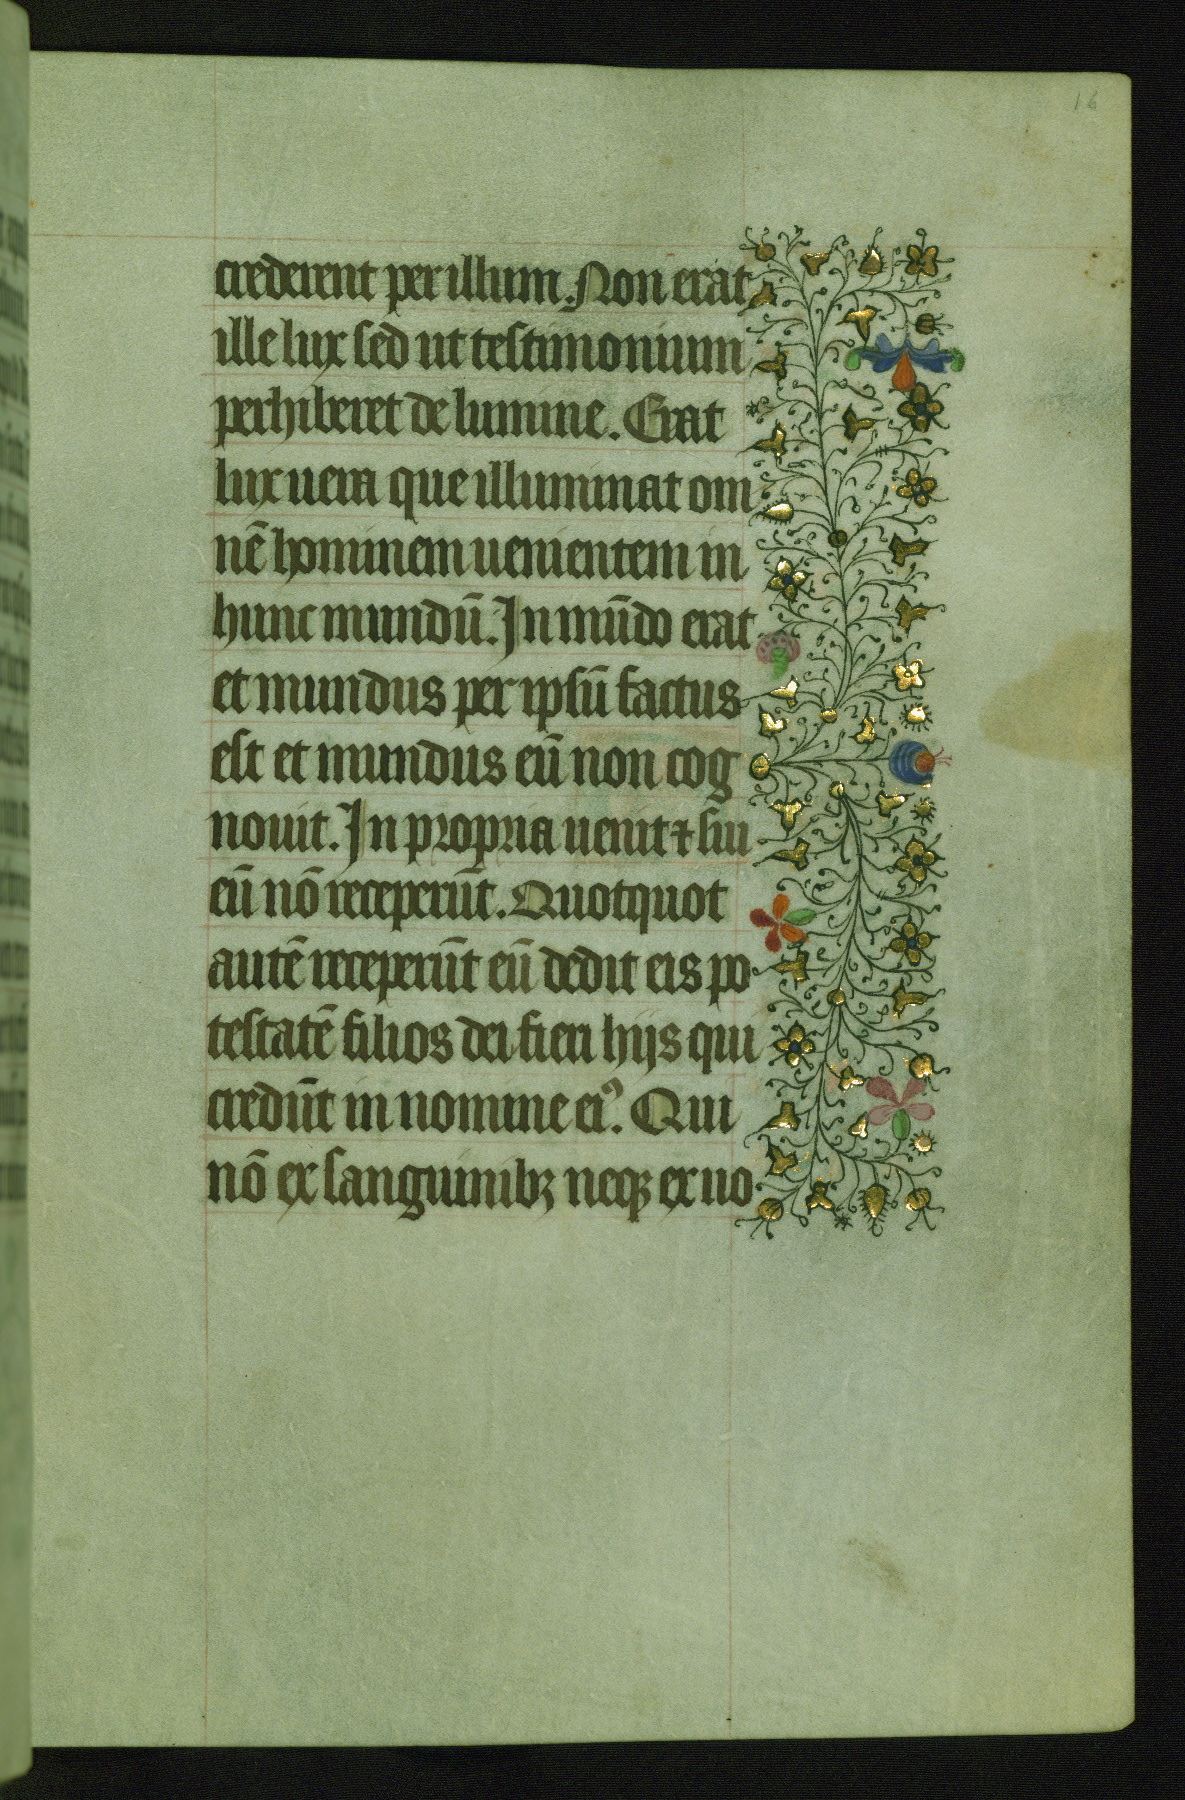 16
crederent per illum. Non erat
ille lux sed ut testimonium
perhiberet de lumine. Erat
lux uera que illuminat om
nē hominem uenientem in
hunc mundū. In mūdo erat
et mundus per ipsū factus
est et mundus eū non cog
nouit. In propria uenit ⁊ sui
eū nō receperūt. Quotquot
autē receperūt eū dedit eis po
testatē filios dei fieri hijs qui
credūt in nomine eiꝰ. Qui
nō ex sanguinibꝫ neqꝫ ex uo